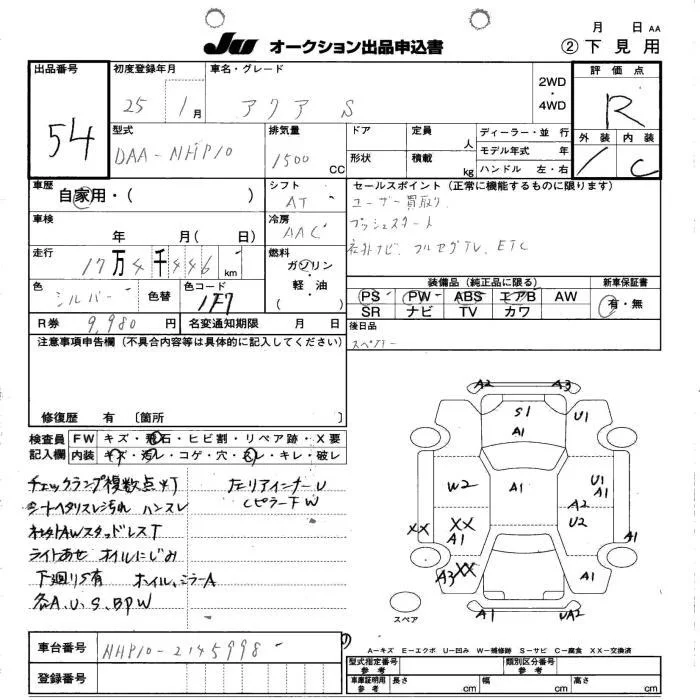 月 日 AA
JU オークション出品申込書
② 下見用
出品番号 54
初度登録年月 25 1月
車名・グレード アクア S
2WD・4WD
評価点 R
外装 内装 C
型式 DAA-NHP10
排気量 1500 CC
ドア 定員 人
形状 積載 kg
ディーラー・並行
モデル年式 年
ハンドル 左・右
車歴 自家用・( )
シフト AT
セールスポイント (正常に機能するものに限ります)
ユーザー買取り
プッシュスタート
社外ナビ. フルセグTV. ETC
車検 年 月( 日)
冷房 AAC
走行 17万4千446 km
燃料 ガソリン・軽・油 ( )
色 シルバー 色替
色コード 1F7
装備品 (純正品に限る)
PS PW ABS エアB AW
SR ナビ TV カワ
新車保証書 有・無
R券 9,980円
名変通知期限 月 日
後日品
スペアキー
注意事項申告欄 (不具合内容等は具体的に記入してください)
修復歴 有 〔箇所 〕
検査員記入欄
FW キズ・飛石・ヒビ割・リペア跡・X要
内装 キズ・汚レ・コゲ・穴・スレ・キレ・破レ
チェックランプ複数点灯
シートヘタリスレ汚れ ハンスレ
スタッドレスT
ライトあせ オイルにじみ
下廻りS有 ホイル、ミラーA
各A.U.S.BPW
左リアインナーU
CピラーFW
A2 A3
S1 U1
A1
W2 A1 U1 A1
A2
XX XX U2
A1 A1
A3 XX A1
A1 UA2
スペア
A-キズ E-エクボ U-凹み W-補修跡 S-サビ C-腐食 XX-交換済
車台番号 NHP10-2145998
登録番号
型式指定番号 参考 類別区分番号 参考
車庫証明用 参考 長さ cm 幅 cm 高さ cm